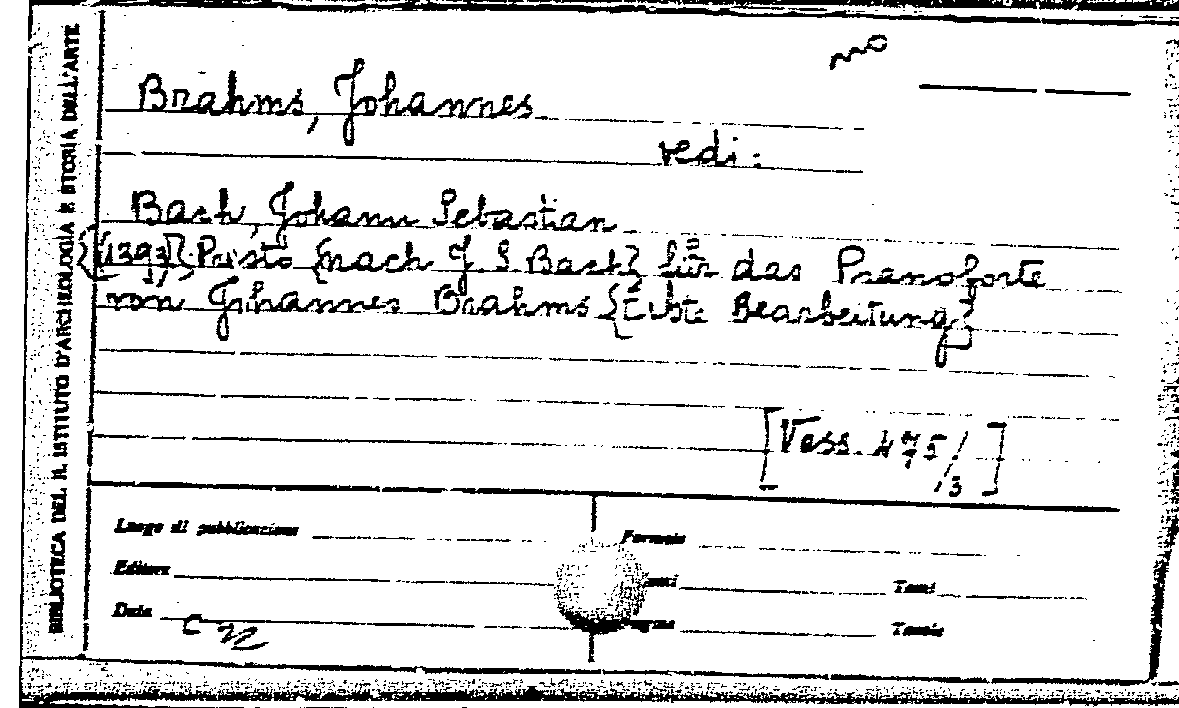 BIBLIOTECA DEL R. ISTITUTO D'ARCHEOLOGIA E STORIA DELL'ARTE
Brahms, Johannes
vedi:
Bach, Johann Sebastian
{[1393]} Presto {nach J. S. Bach} für das Pianoforte
von Johannes Brahms {Erste Bearbeitung}
[Vess. 475/3]
Luogo di pubblicazione
Formato
Editore
Tomi
Data
Pagine
Tavole